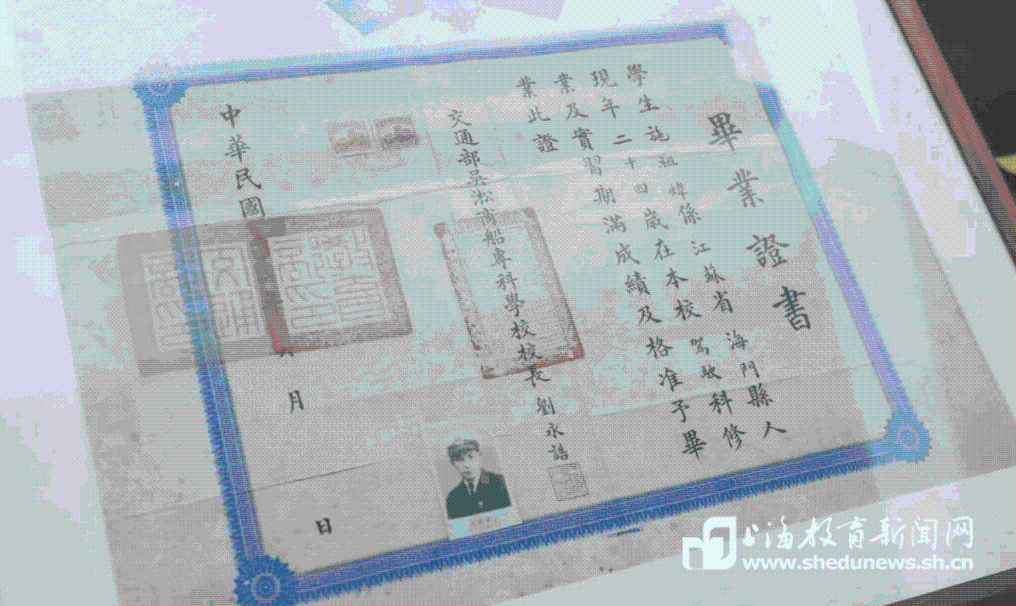 畢業證書
學生施祖煒係江蘇省海門縣人
現年二十四歲在本校駕駛科修
業及實習期滿成績及格准予畢
業此證
交通部吳淞商船專科學校校長劉永誥
中華民國
月
日
上海教育新闻网
www.shedunews.sh.cn